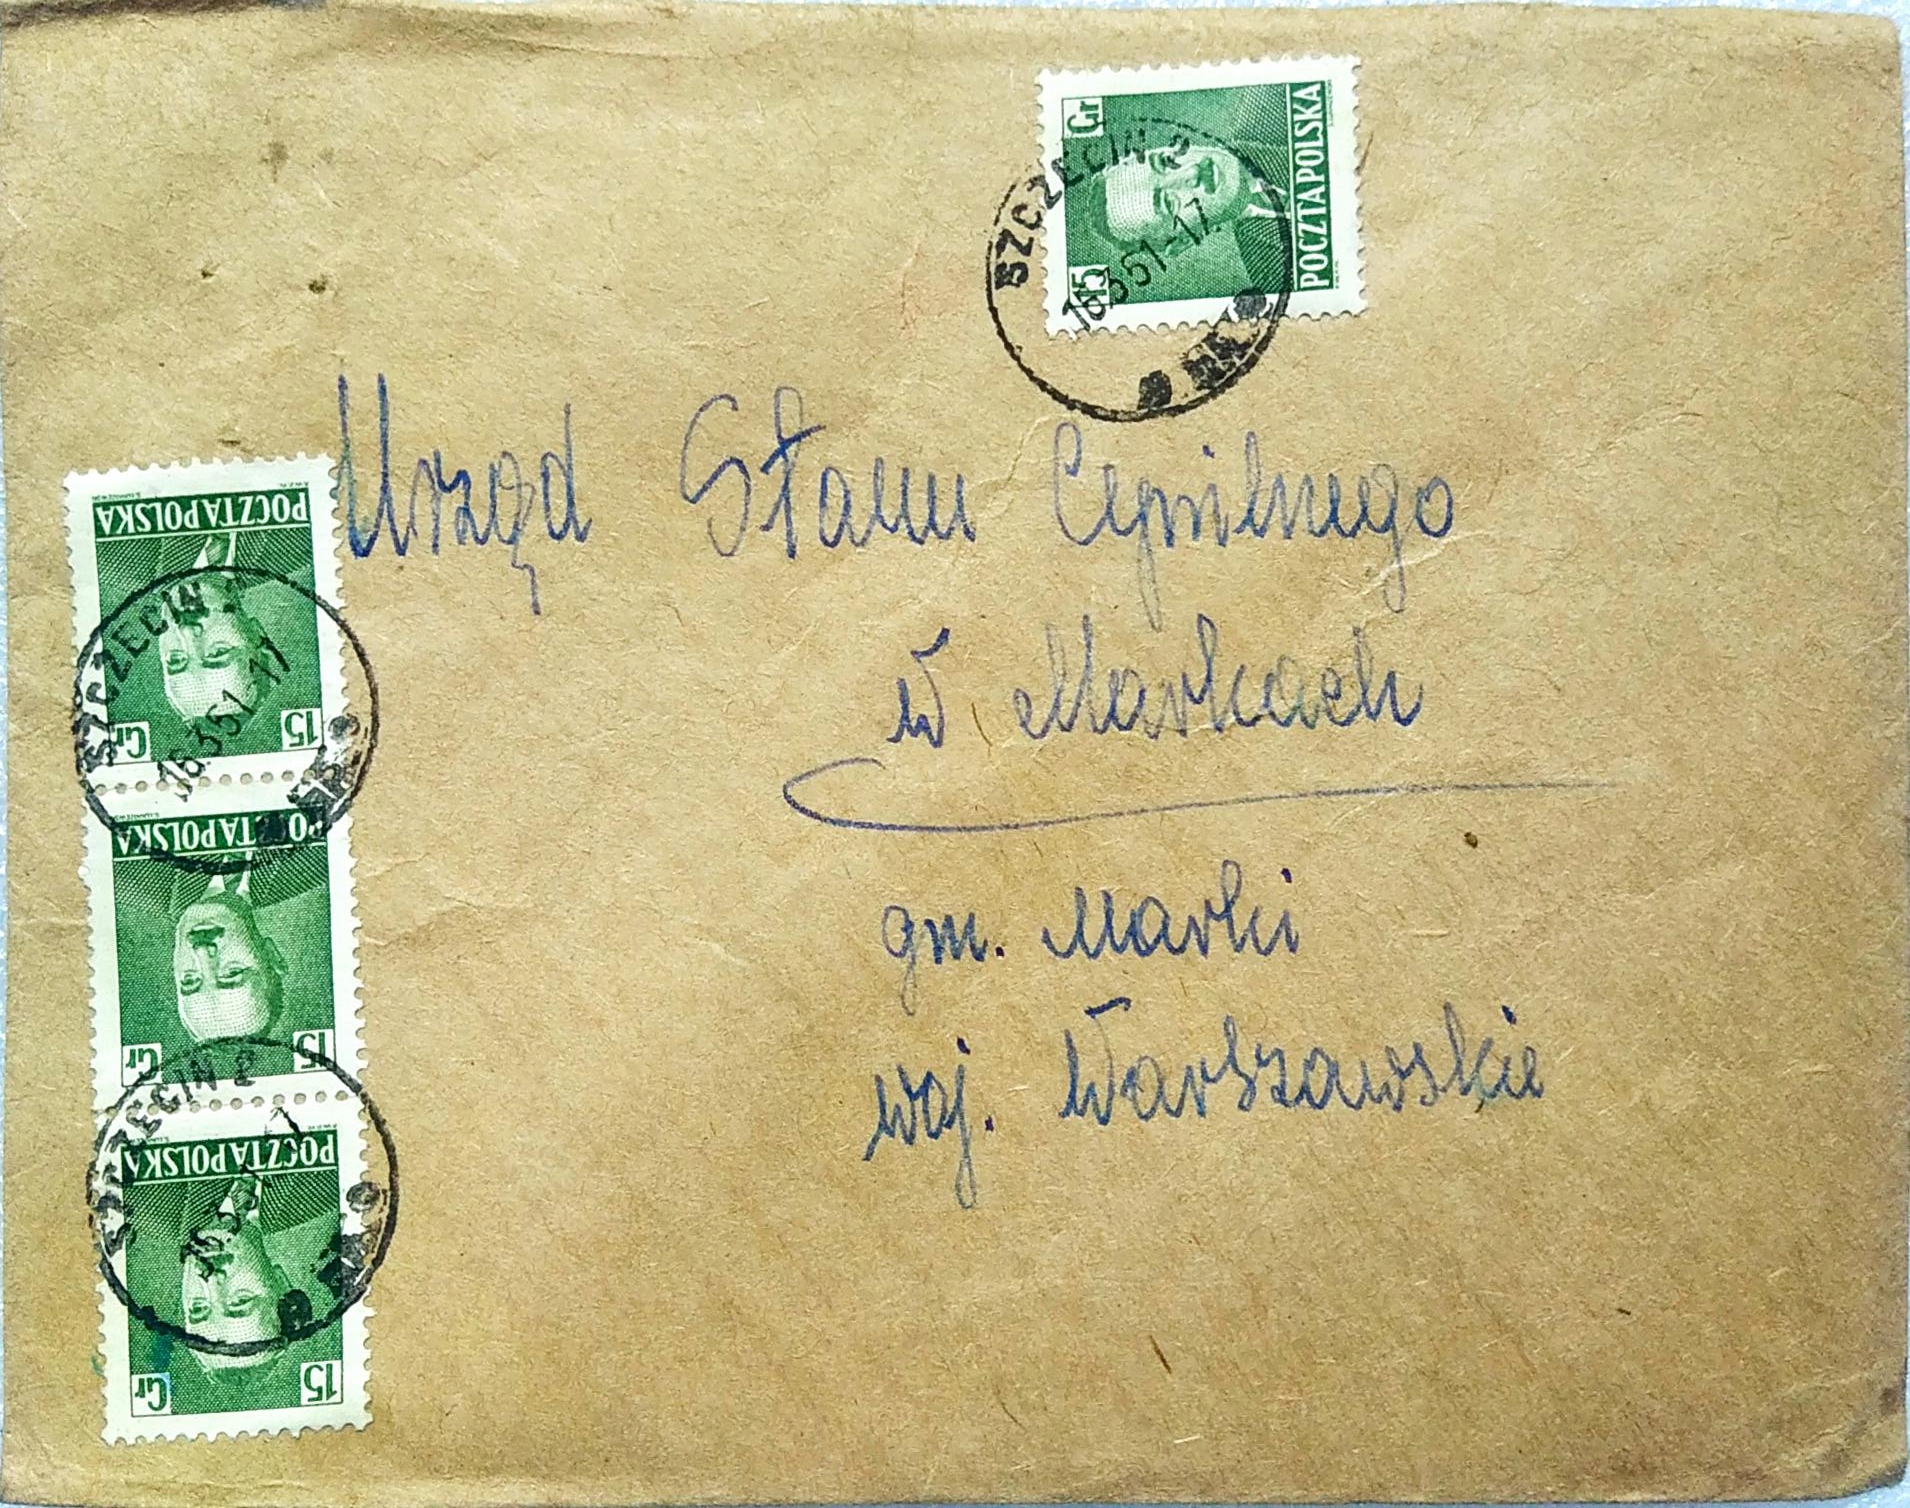 15 Gr
POCZTA POLSKA
SZCZECIN 2
16.3.51-17
Urząd Stanu Cywilnego
w Markach
gm. Marki
woj. Warszawskie
POCZTA POLSKA
15 Gr
SZCZECIN
16.3.51-17
POCZTA POLSKA
15 Gr
SZCZECIN 2
16.3.51
POCZTA POLSKA
15 Gr